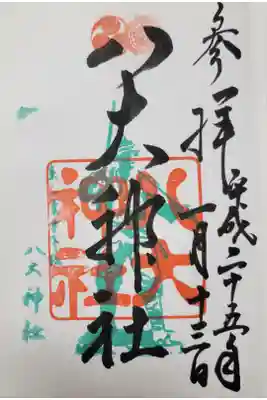 奉拝
平成二十五年
一月十三日
八大神社
八大
神社
八大神社